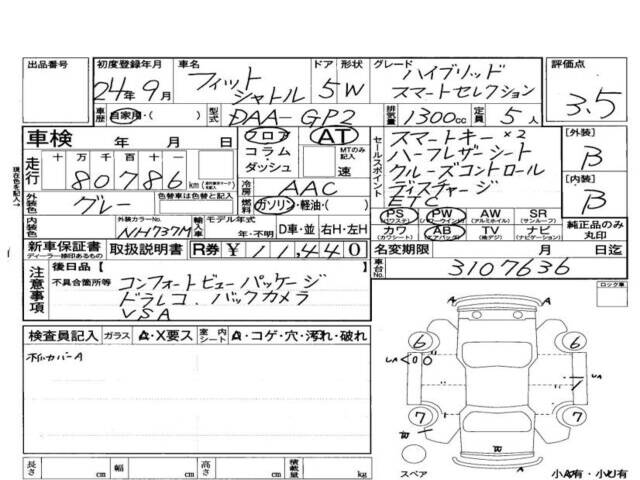 出品番号
初度登録年月 車名 ドア 形状 グレード 評価点
24年9月 フィット シャトル 5 W ハイブリッド スマートセレクション 3.5
車歴 自家用・( ) 型式 DAA-GP2 排気量 1300cc 定員 5人
車検 年 月 日 フロア コラム・ダッシュ AT MTのみ記入 速
走行 十 万 千 百 十 一
80786 km
セールスポイント
スマートキー×2
ハーフレザーシート
クルーズコントロール
ディスチャージ
ETC
[外装] B
[内装] B
冷房 AAC
外装色 グレー 色替車は色替と記入 燃料 ガソリン・軽油・( )
現在色を記入→
内装色 外装カラーNo. NH737M 輸入車 モデル年式 年・不明 D車・並 右H・左H
PS (パワステ) PW (パワーウインド) AW (アルミホイル) SR (サンルーフ)
カワ (カワシート) AB (エアバッグ) TV (地デジ) ナビ (ナビゲーション)
純正品のみ丸印
新車保証書 ディーラー捺印あるもの 取扱説明書 R券 ¥11,440
名変期限 月 日迄
注意事項 後日品 [ ]
車台No. 3107636
不具合箇所等 コンフォートビューパッケージ
ドラレコ バックカメラ
VSA
ロック車
検査員記入 ガラス A・X要ス 室内シート A・コゲ・穴・汚れ・破れ
ホイルカバーA
A
6 6
7 7
スペア 小A有・小U有
長さ cm 幅 cm 高さ cm 積載量 kg